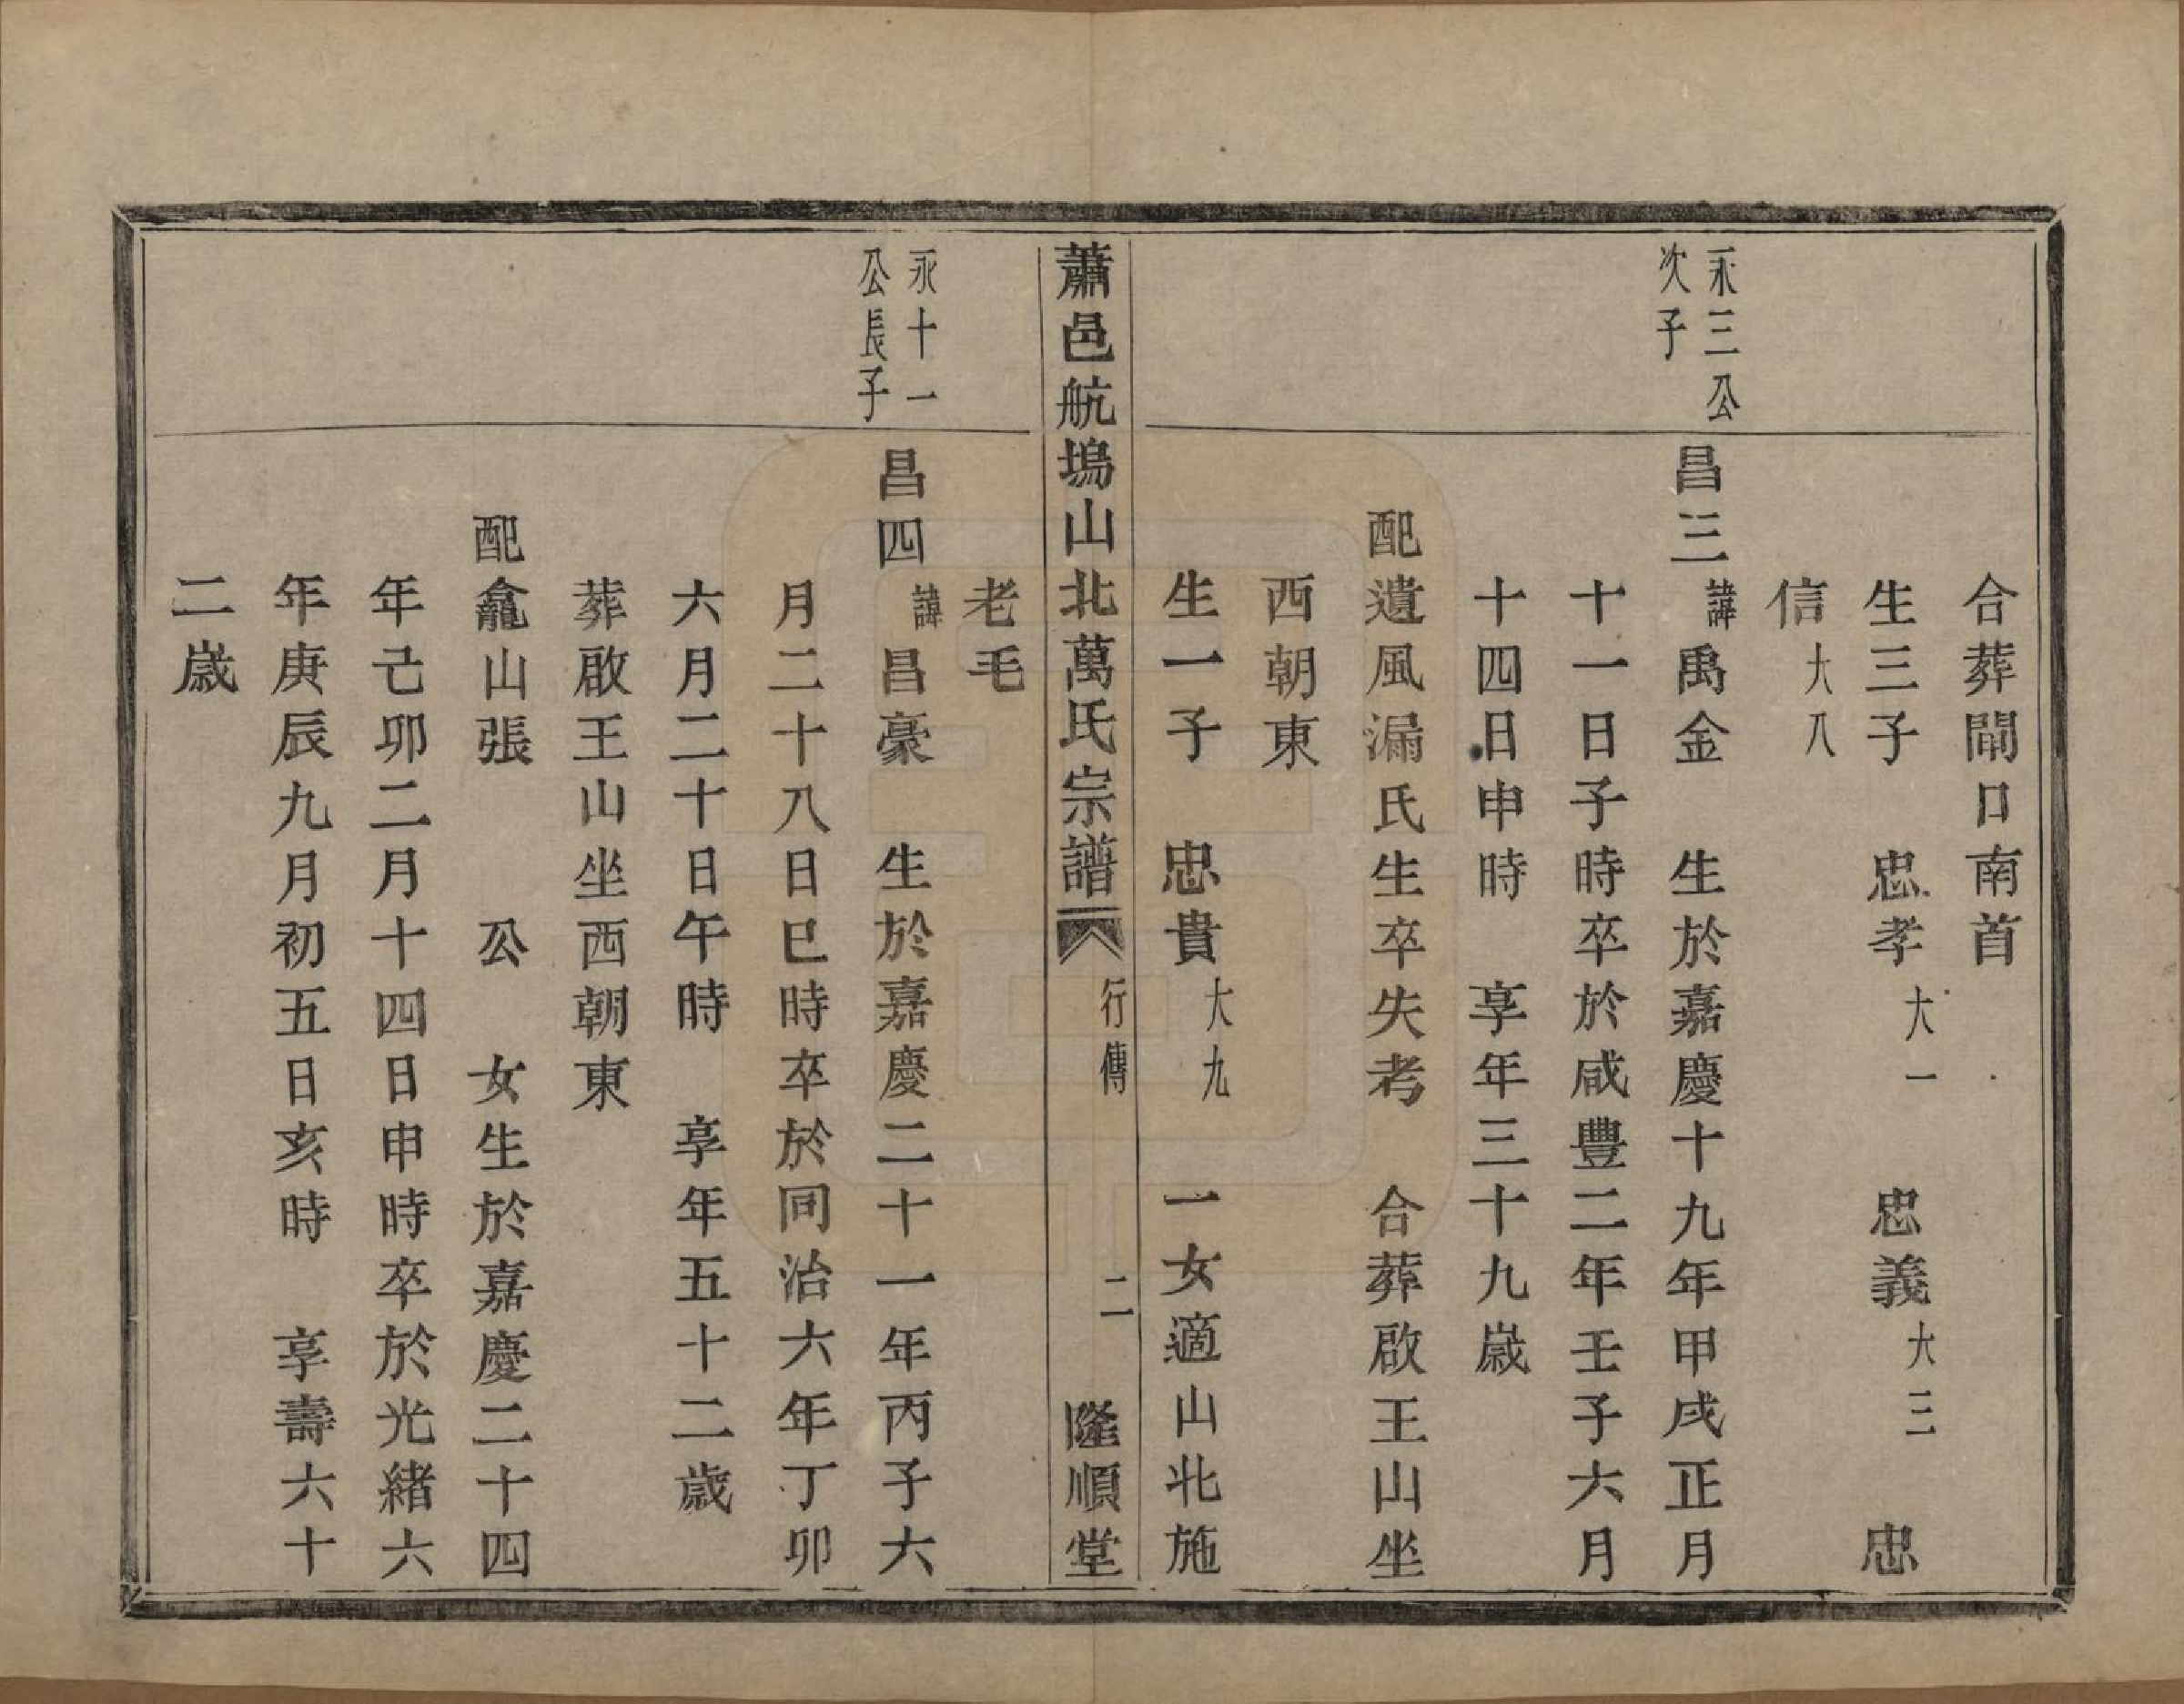 合葬閘口南首
生三子　忠孝大一　忠義大三　忠
信大八
永三公
次子
昌三諱禹金　生於嘉慶十九年甲戌正月
十一日子時卒於咸豐二年壬子六月
十四日申時　享年三十九歲
配遺風漏氏生卒失考　合葬啟王山坐
西朝東
生一子　忠貴大九　一女適山北施
蕭邑航塢山北萬氏宗譜　行傳　二　隆順堂
老毛
永十一
公長子
昌四諱昌豪　生於嘉慶二十一年丙子六
月二十八日巳時卒於同治六年丁卯
六月二十日午時　享年五十二歲
葬啟王山坐西朝東
配龕山張　公　女生於嘉慶二十四
年己卯二月十四日申時卒於光緒六
年庚辰九月初五日亥時　享壽六十
二歲